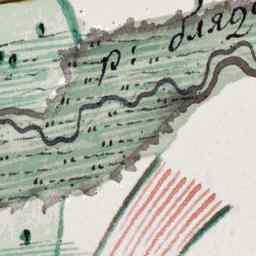 р: бляд